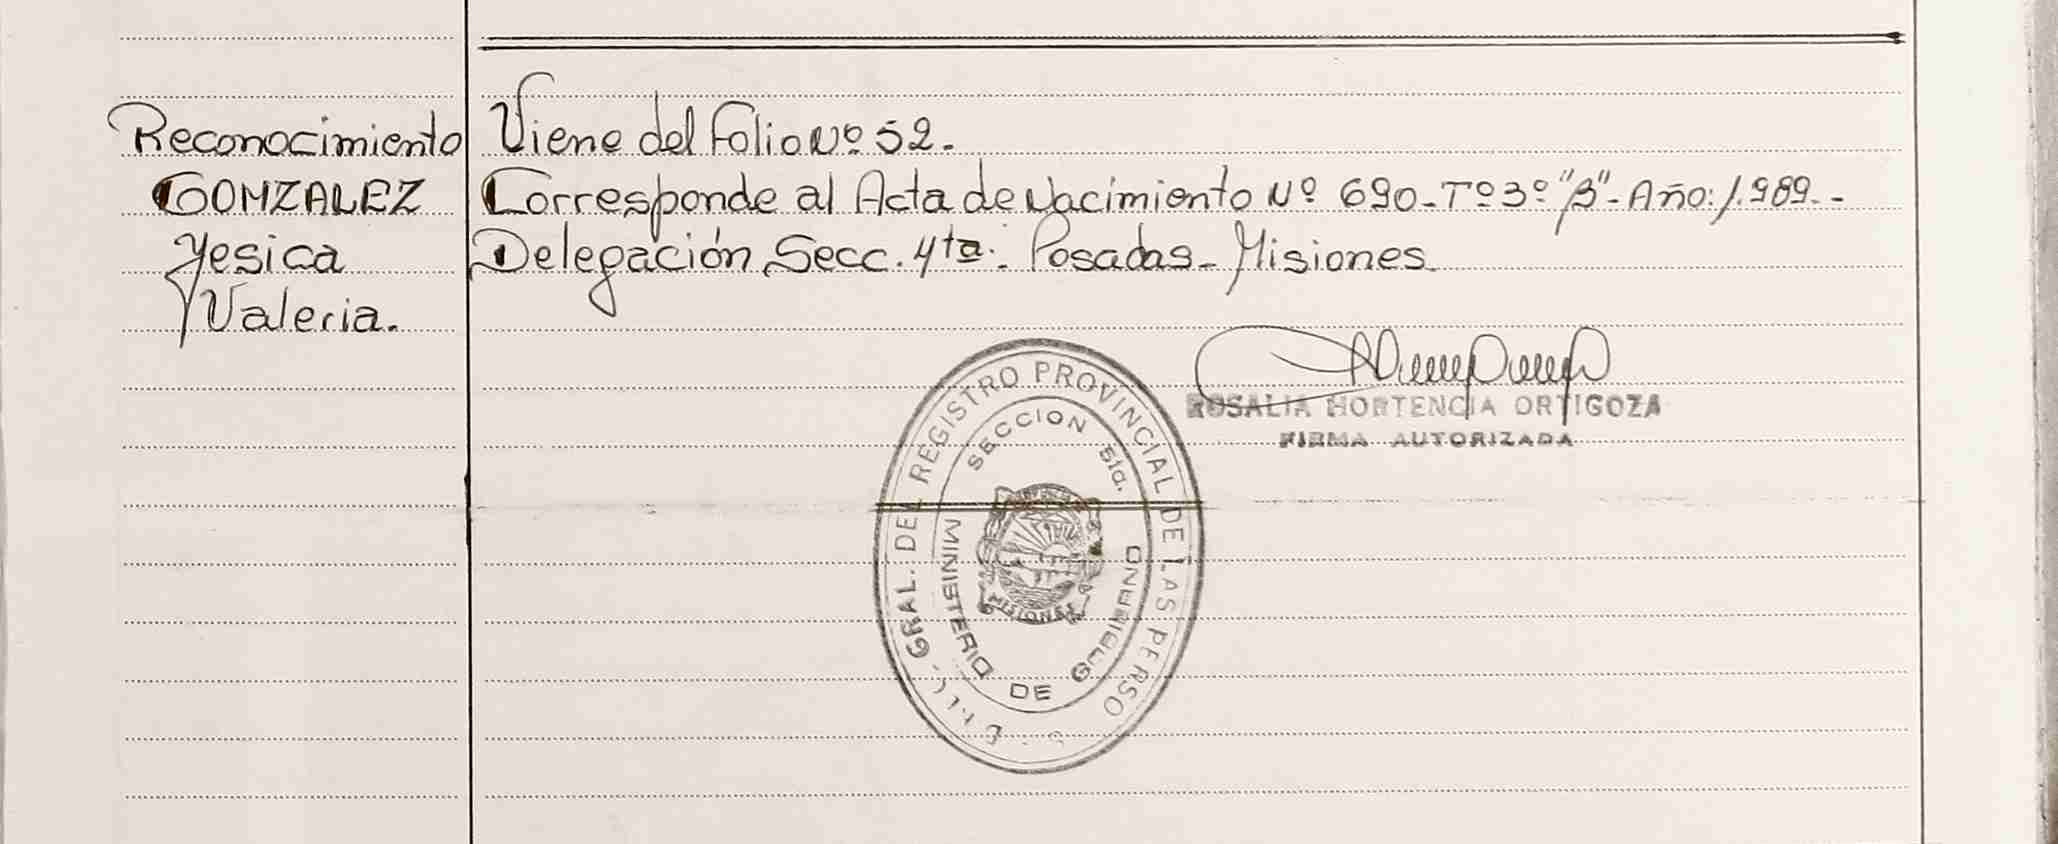 Reconocimiento
GONZALEZ
Yesica
Valeria.
Viene del Folio Nº 52.
Corresponde al Acta de Nacimiento Nº 690 - Tº 3º "B" - Año: 1.989. -
Delegación Secc. 4ta. Posadas - Misiones
ROSALIA HORTENCIA ORTIGOZA
FIRMA AUTORIZADA
GRAL. DEL REGISTRO PROVINCIAL DE LAS PERSO
SECCION 5ta.
MINISTERIO DE GOBIERNO
MISIONES